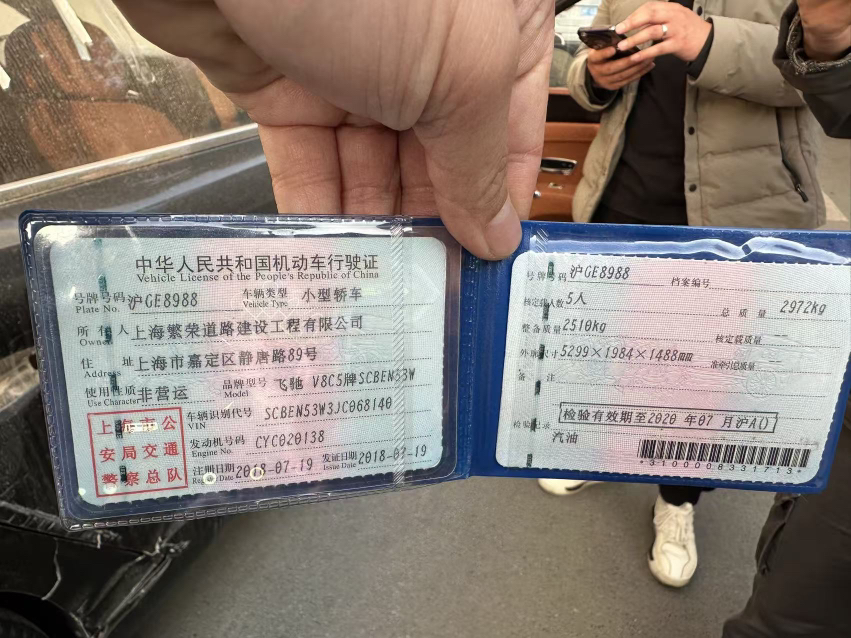 中华人民共和国机动车行驶证
Vehicle License of the People's Republic of China
号牌号码 沪GE8988 车辆类型 小型轿车
Plate No. Vehicle Type
所有人 上海繁荣道路建设工程有限公司
Owner
住址 上海市嘉定区静唐路89号
Address
使用性质 非营运 品牌型号 飞驰 V8C5牌SCBEN53W
Use Character Model
上海市公
安局交通
警察总队
车辆识别代号 SCBEN53W3JC068140
VIN
发动机号码 CYC020138
Engine No.
注册日期 2018-07-19 发证日期 2018-07-19
Register Date Issue Date
号牌号码 沪GE8988 档案编号
核定载人数 5人 总质量 2972kg
整备质量 2510kg 核定载质量
外廓尺寸 5299×1984×1488mm 准牵引总质量
备注
检验记录 检验有效期至2020 年07 月沪A()
汽油
*3100008331713*